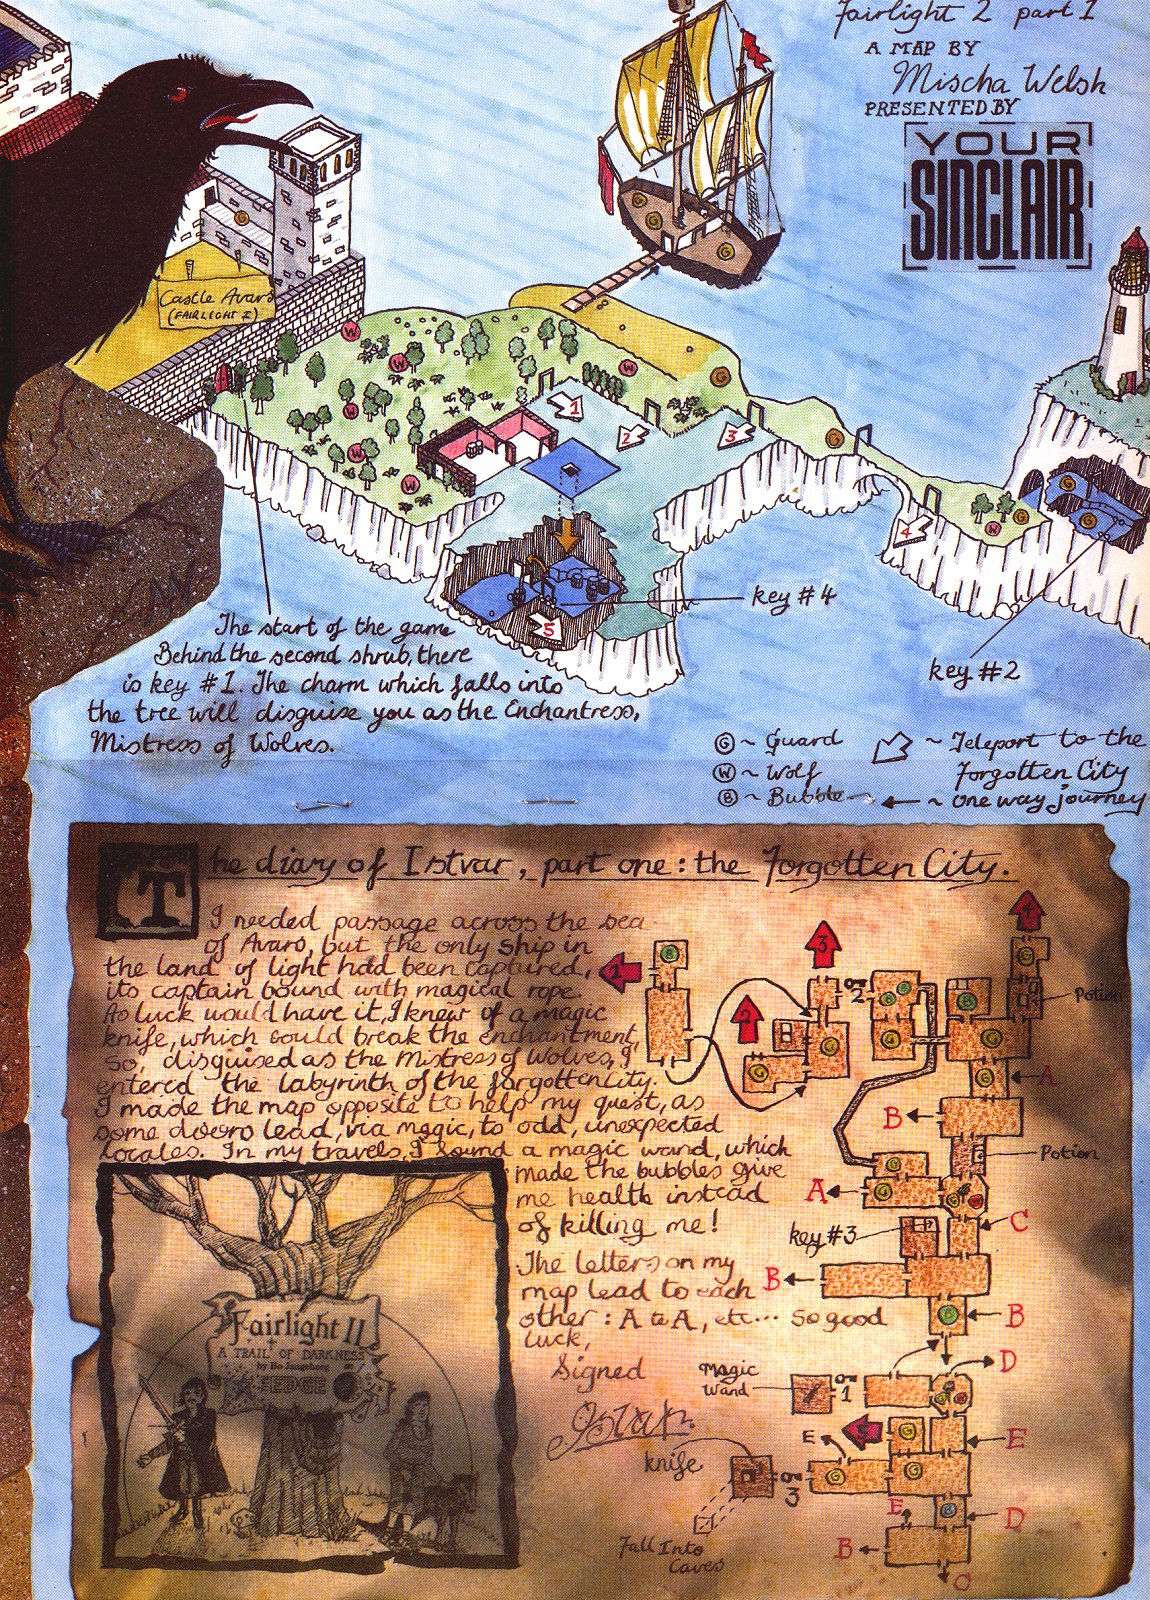 Fairlight 2 part 1
A MAP BY
Mischa Welsh
PRESENTED BY
YOUR
SINCLAIR
Castle Avars
(FAIRLIGHT I)
W
W
W
W
W
W
W
W
G
G
G
G
G
G
G
G
G
G
1
2
3
4
5
key #4
key #2
The start of the game
Behind the second shrub, there
is key #1. The charm which falls into
the tree will disguise you as the Enchantress,
Mistress of Wolves.
G ~ Guard
W ~ Wolf
B ~ Bubble
~ Teleport to the
Forgotten City
~ one way journey
The diary of Istvar, part one: the Forgotten City.
I needed passage across the sea
of Avars, but the only ship in
the land of light had been captured,
its captain bound with magical rope.
As luck would have it, I knew of a magic
knife, which could break the enchantment,
so, disguised as the Mistress of Wolves, I
entered the labyrinth of the forgotten city.
I made the map opposite to help my quest, as
some doors lead, via magic, to odd, unexpected
locales. In my travels, I found a magic wand, which
made the bubbles give
me health instead
of killing me!
The letters on my
map lead to each
other: A to A, etc... so good
luck,
Signed
Istvar.
Fairlight II
A TRAIL OF DARKNESS
by Bo Jangeborg
THE EDGE
1
2
3
4
B
2
B
B
B
G
G
G
G
G
G
Potion
A
B
Potion
G
A
G
C
key #3
B
B
B
D
Magic
Wand
1
5
G
E
E
knife
3
G
G
E
B
D
Fall Into
Caves
B
C